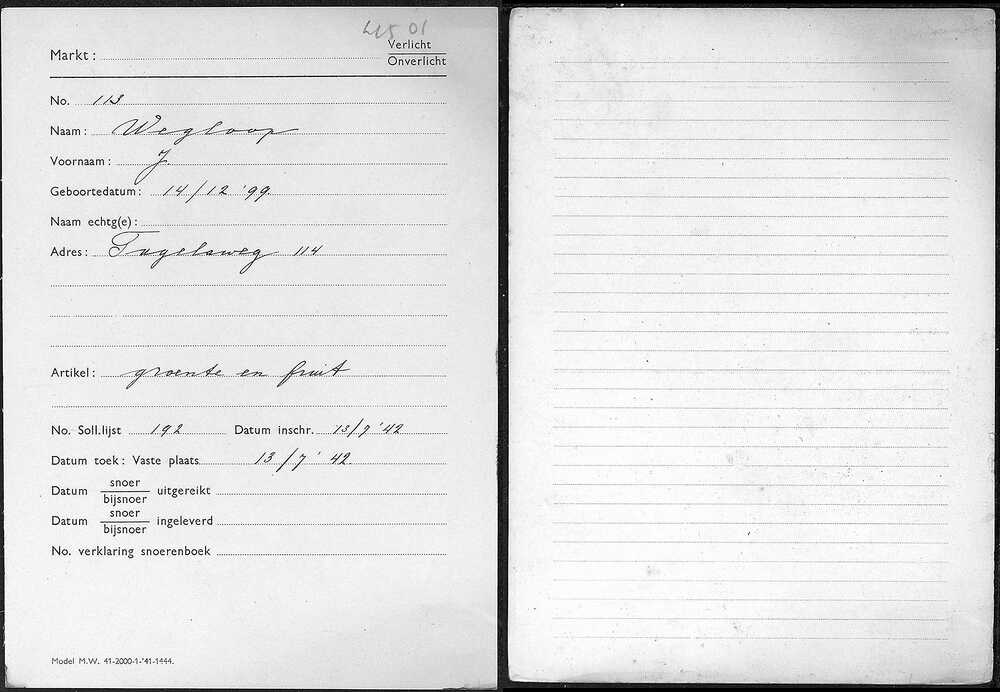 L15 01
Markt :
Verlicht
Onverlicht
No. 113
Naam : Wegloop
Voornaam : J
Geboortedatum : 14/12 '99.
Naam echtg(e) :
Adres : Tugelaweg 114
Artikel : groente en fruit
No. Soll.lijst 192 Datum inschr. 13/7 '42
Datum toek : Vaste plaats 13/7 '42.
Datum snoer/bijsnoer uitgereikt
Datum snoer/bijsnoer ingeleverd
No. verklaring snoerenboek
Model M.W. 41-2000-1-'41-1444.